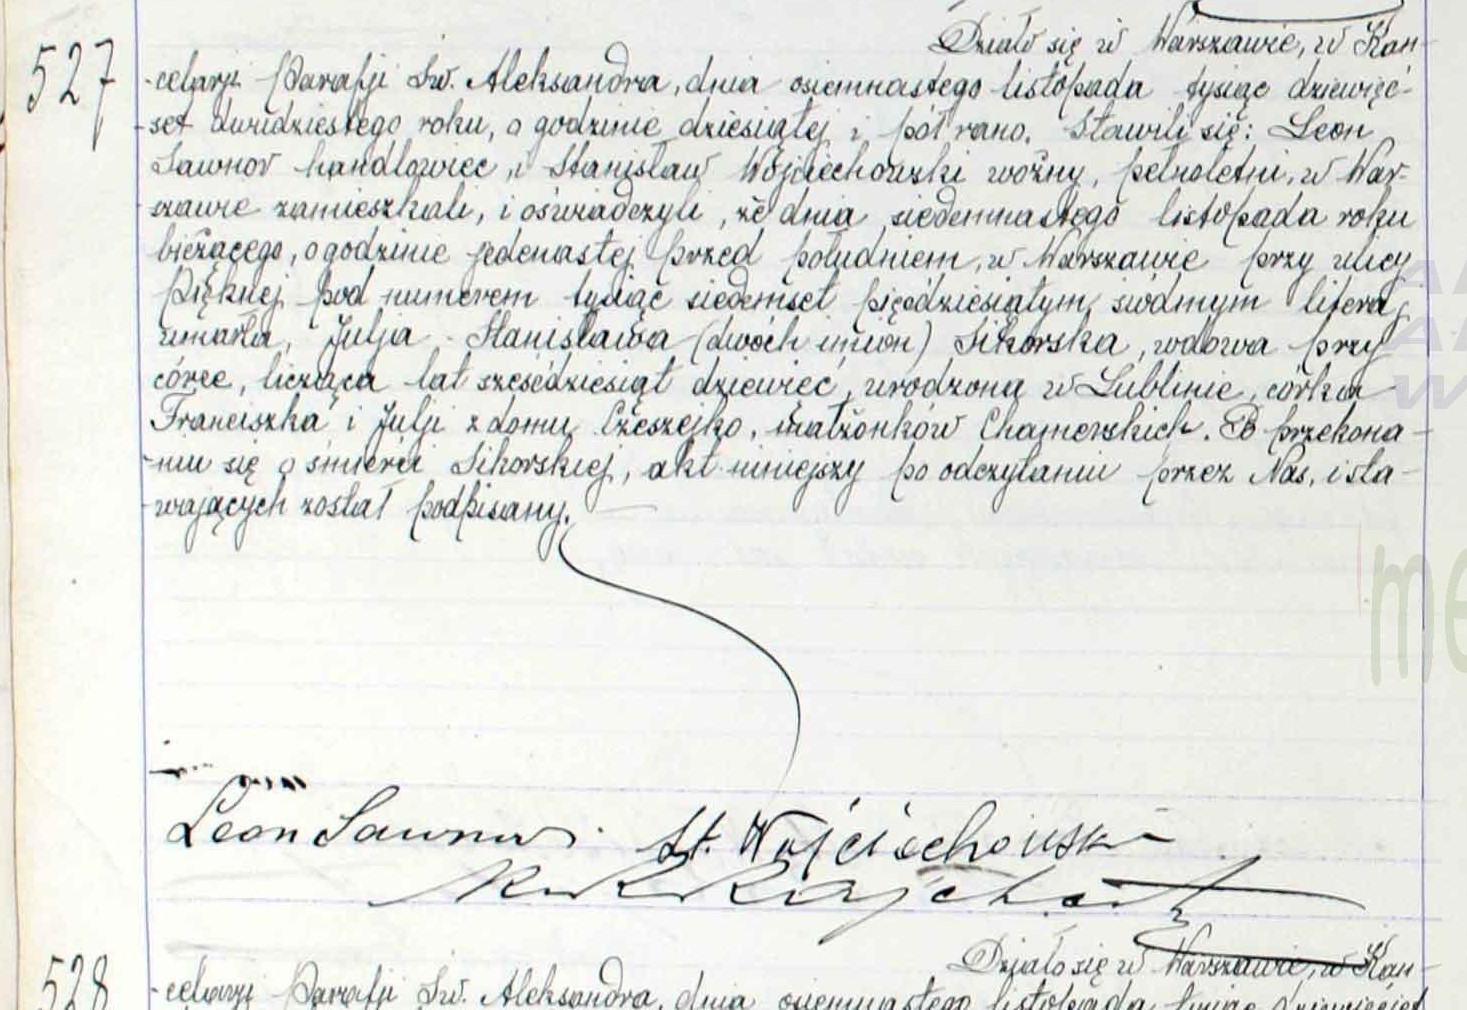 Działo się w Warszawie, w Kan-
527
-celarji Parafji Św. Aleksandra, dnia osiemnastego listopada tysiąc dziewięć-
set dwudziestego roku, o godzinie dziesiątej i pół rano. Stawili się: Leon
Sawnor handlowiec, i Stanisław Wojciechowski woźny, pełnoletni, w War-
szawie zamieszkali, i oświadczyli, że dnia siedemnastego listopada roku
bieżącego, o godzinie jedenastej przed południem, w Warszawie przy ulicy
Pięknej pod numerem tysiąc siedemset pięćdziesiątym siódmym litera
umarła, Julja - Stanisława (dwóch imion) Sikorska, wdowa przy
córce, licząca lat sześćdziesiąt dziewięć, urodzona w Lublinie, córka
Franciszka i Julji z domu Czeszejko, małżonków Chamerskich. Po przekona-
-niu się o śmierci Sikorskiej, akt niniejszy po odczytaniu przez Nas, i sta-
-wających został podpisany.
Leon Sawnor. St. Wojciechowski
Działo się w Warszawie, w Kan-
528
-celarji Parafji Św. Aleksandra, dnia osiemnastego listopada tysiąc dziewięćset